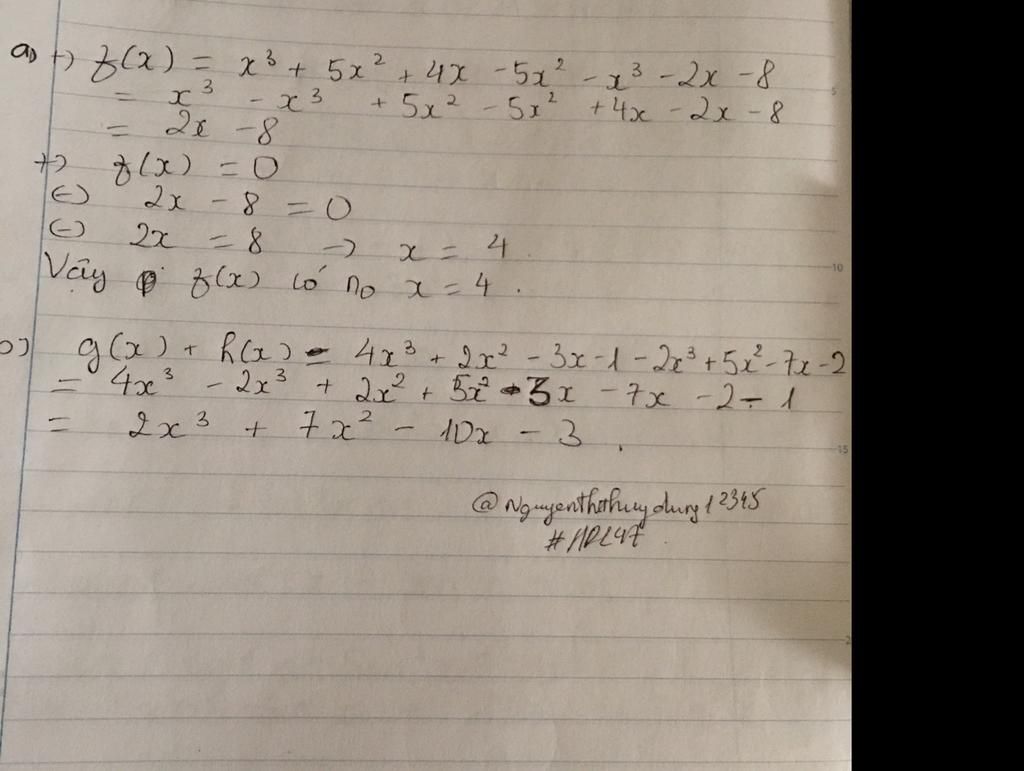 a) +) f(x) = x³ + 5x² + 4x - 5x² - x³ - 2x - 8
= x³ - x³ + 5x² - 5x² + 4x - 2x - 8
= 2x - 8
+) f(x) = 0
(-) 2x - 8 = 0
(-) 2x = 8 -> x = 4.
Vậy f(x) có no x = 4.
b) g(x) + h(x) = 4x³ + 2x² - 3x - 1 - 2x³ + 5x² - 7x - 2
= 4x³ - 2x³ + 2x² + 5x² - 3x - 7x - 2 - 1
= 2x³ + 7x² - 10x - 3.
@Nguyenthithuydung12345